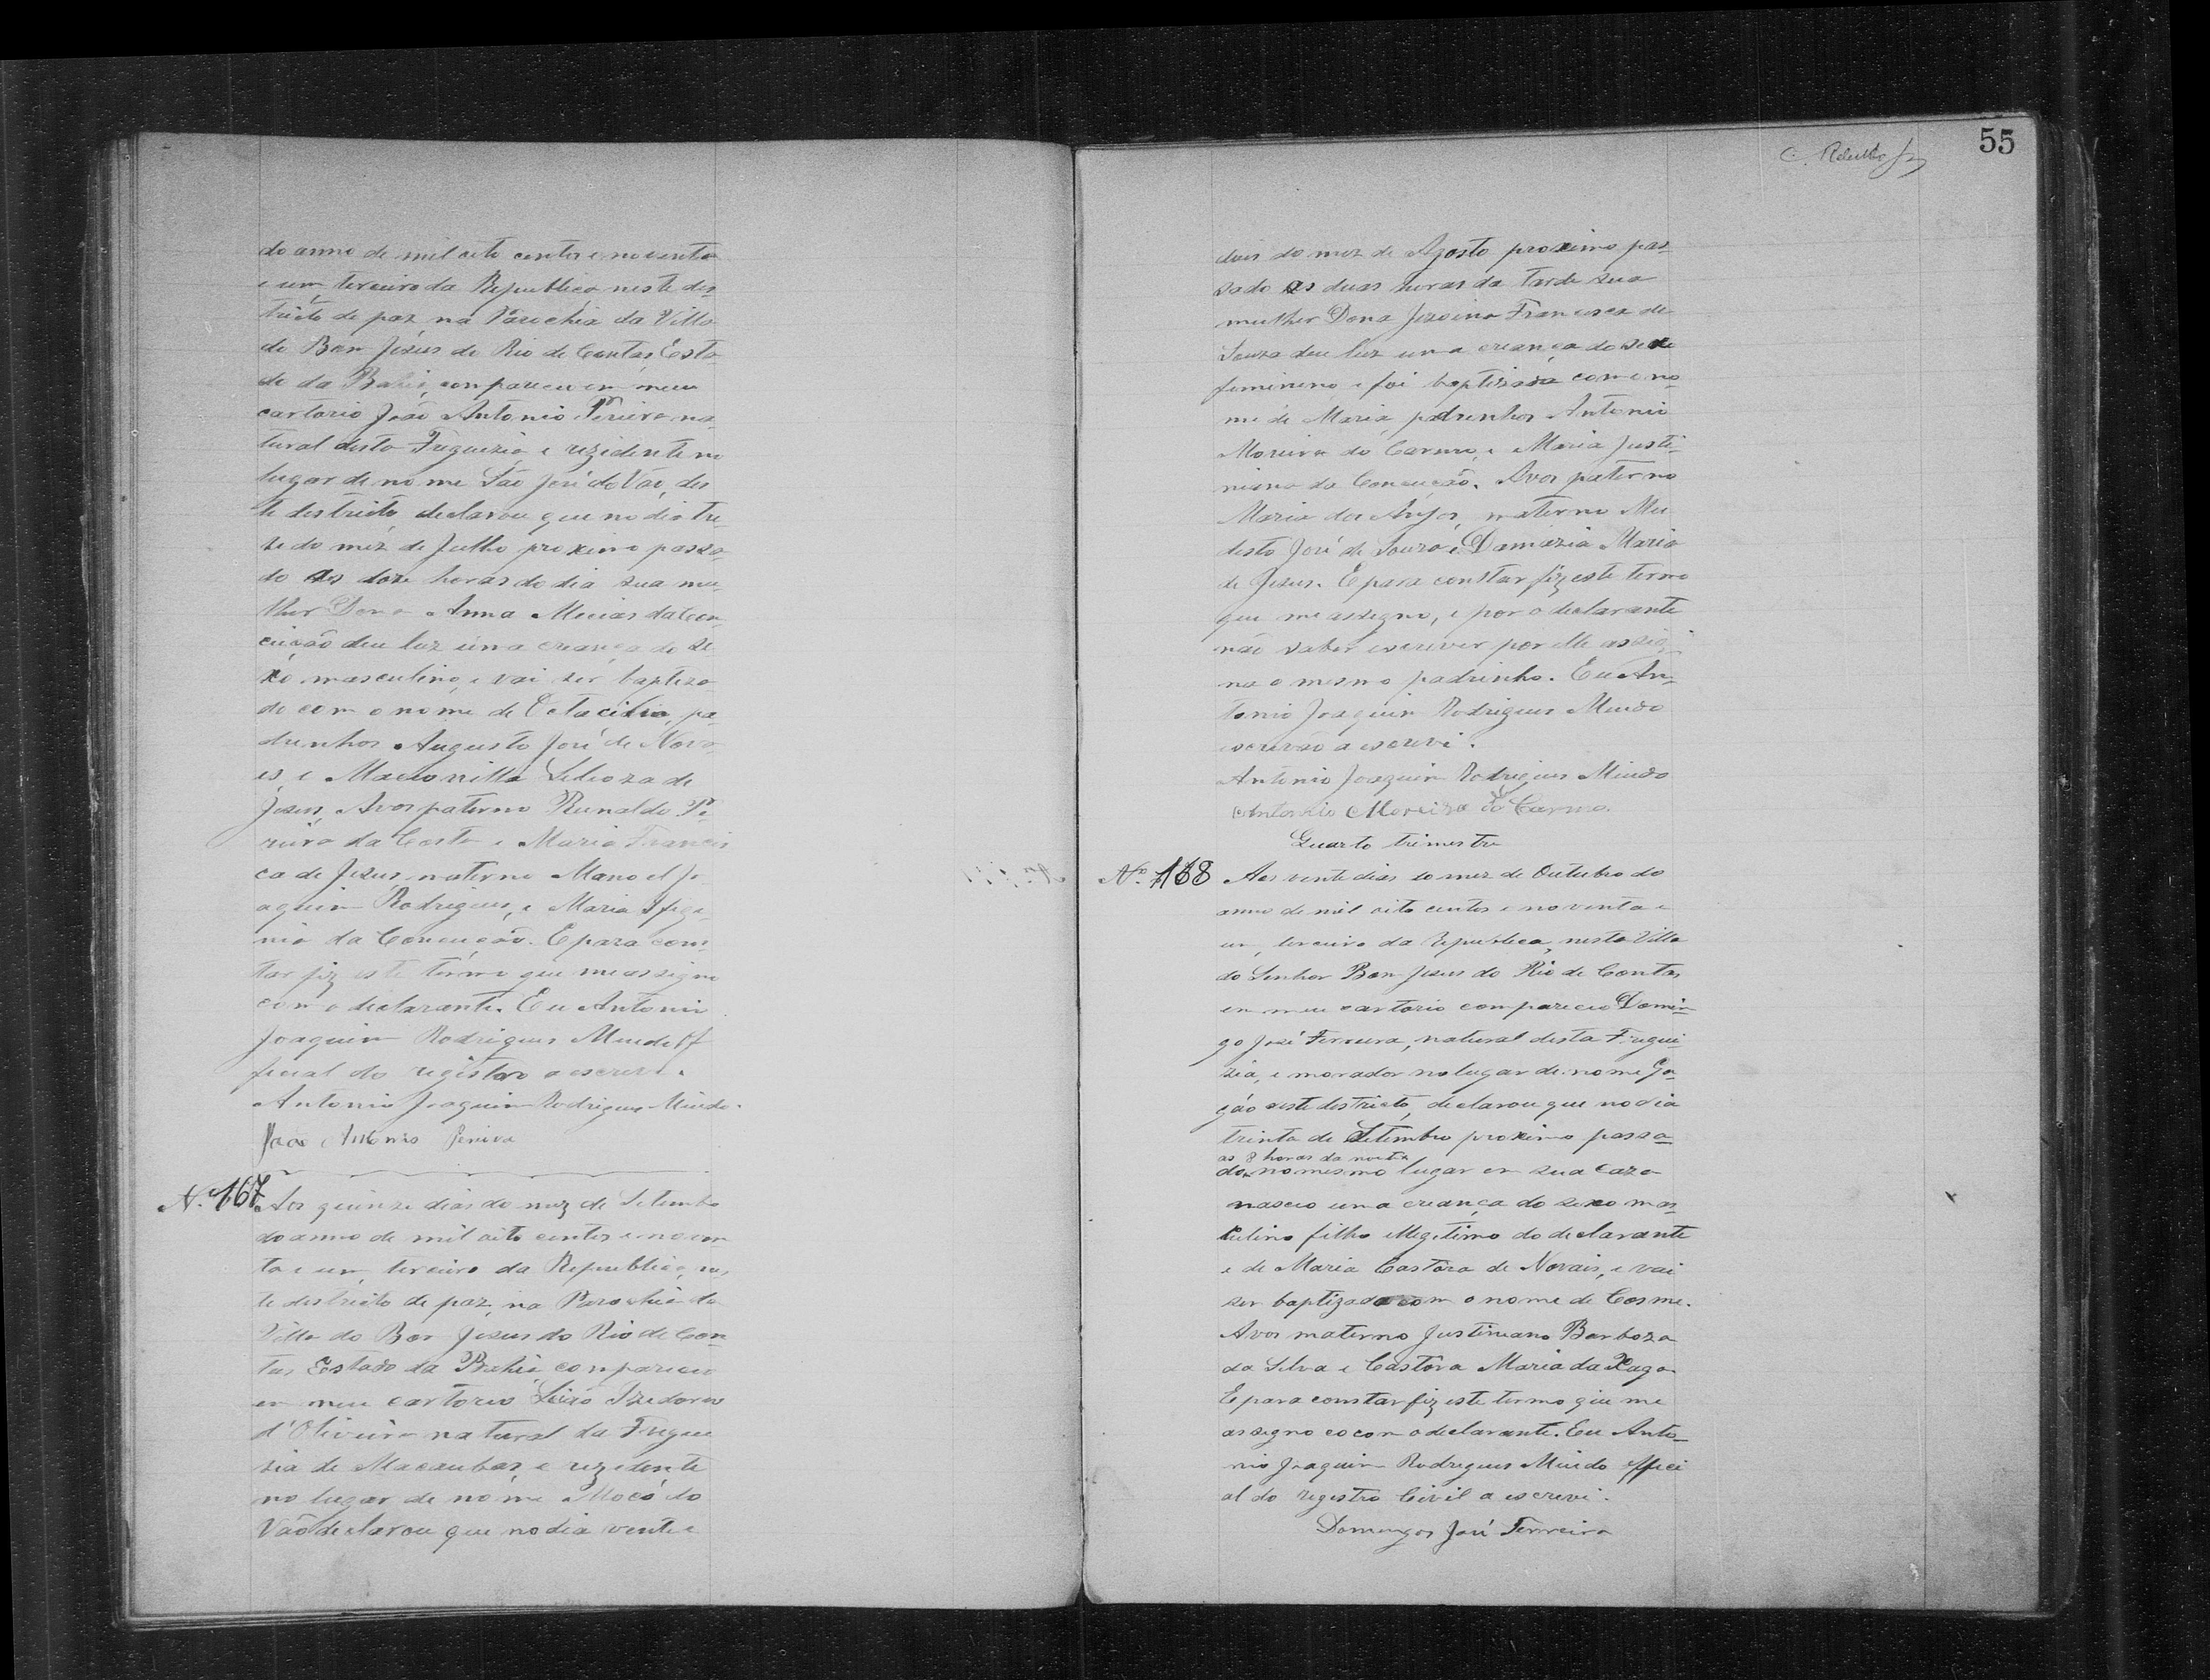 do anno de mil oito centos e noventa
e um terceiro da Republica neste des
tricto de paz, na Parochia da Villa
do Bom Jesus do Rio de Contas, Esta
do da Bahia, compareceu em meu
cartorio João Antonio Pereira na
tural desta Freguezia, e rezidente no
lugar de nome São José do Vão, des
te destricto, declarou que no dia tre
se do mez de Julho proximo passa
do as doze horas do dia sua mu
lher Dona Anna Mecias da Con
ceição deu luz uma creança do se
xo masculino, e vai ser baptiza
do com o nome de Octacilio, pa
drinhos Augusto José de Nova
es, e de
Jesus, Avos paterno Reinaldo Pe
reira da Costa e Maria Francis
ca de Jesus, materno Manoel Jo
aquim Rodrigues, e Maria Efige
nia da Conceição. E para cons
tar fiz este termo que me assigno
com o declarante. Eu Antonio
Joaquim Rodrigues Miudo Of
ficial do registro o escrevi.
Antonio Joaquim Rodrigues Miudo.
João Antonio Pereira
N. 167 Aos quinze dias do mez de Setembro
do anno de mil oito centos e noven
ta e um, terceiro da Republica, nes
te destricto de paz, na Parochia da
Villa do Bom Jesus do Rio de Con
tas Estado da Bahia, compareceu
em meu cartorio Izidorio
d'Oliveira natural da Fregue
sia de Macaubas, e rezidente
no lugar de nome Mocó do
Vão declarou que no dia vente e
55
dois do mez de Agosto proximo pas
sado as duas horas da tarde sua
mulher Dona Jesoina Francisca de
Souza deu luz uma creança do sexo
feminino e foi baptizada com o no
me de Maria, padrinhos Antonio
Moreira do Carmo, e Maria Justi
niana da Conceição. Avos paterno
Maria dos Anjos, materno Mo
desto José de Souza e Damazia Maria
de Jesus. E para constar fiz este termo
que me assigno, e por o declarante
não saber escrever por elle assig
na o mesmo padrinho. Eu An
tonio Joaquim Rodrigues Miudo
escrivão o escrevi.
Antonio Joaquim Rodrigues Miudo
Antonio Moreira do Carmo.
Quarto trimestre
N. 168 Aos vente dias do mez de Outubro do
anno de mil oito centos e noventa e
um, terceiro da Republica, nesta Villa
do Senhor Bom Jesus do Rio de Contas,
em meu cartorio compareceu Domin
go José Ferreira, natural desta Fregue
sia, e morador no lugar de nome
deste destricto, declarou que no dia
trinta de Setembro proximo passa
as 8 horas da noite
do no mesmo lugar em sua caza
nasceo uma creança do sexo mas
culino filho illegitimo do declarante
e de Maria Castora de Novais, e vai
ser baptizado com o nome de Cosme.
Avos materno Justiniano Barboza
da Silva e Castora Maria da Xaga
E para constar fiz este termo que me
assigno eo com o declarante. Eu Anto
nio Joaquim Rodrigues Miudo offici
al do registro Civil o escrevi.
Domingos José Ferreira